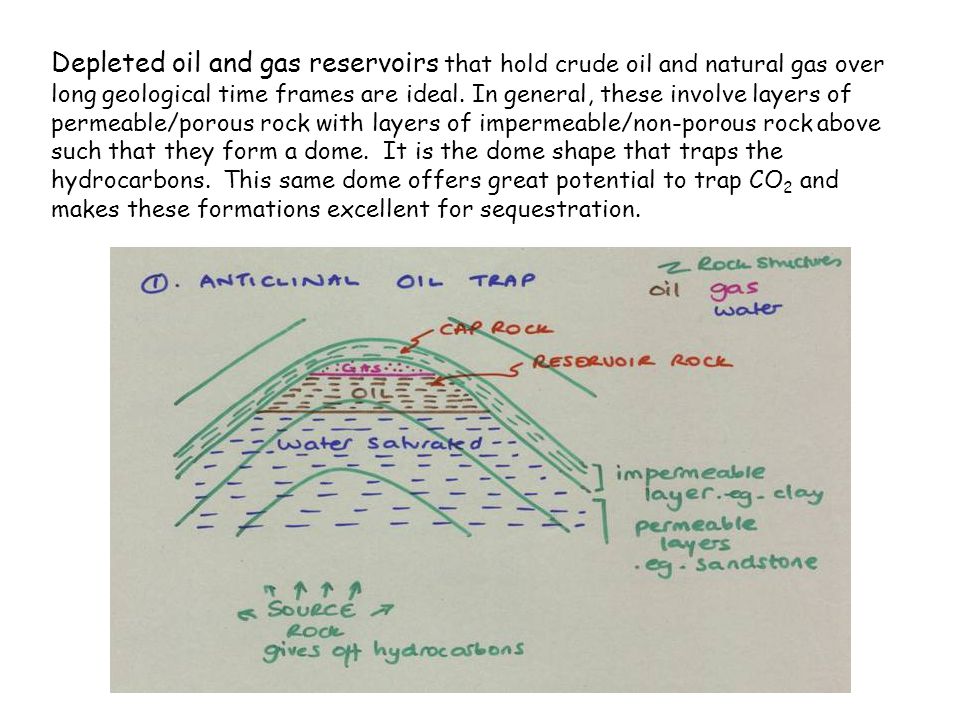 Depleted oil and gas reservoirs that hold crude oil and natural gas over
long geological time frames are ideal. In general, these involve layers of
permeable/porous rock with layers of impermeable/non-porous rock above
such that they form a dome. It is the dome shape that traps the
hydrocarbons. This same dome offers great potential to trap CO2 and
makes these formations excellent for sequestration.
①. ANTICLINAL OIL TRAP
Rock structures
oil gas
water
CAP ROCK
RESERVOIR ROCK
GAS
OIL
water saturated
impermeable
layer. eg. clay
permeable
layers
.eg. sandstone
SOURCE
ROCK
gives off hydrocarbons